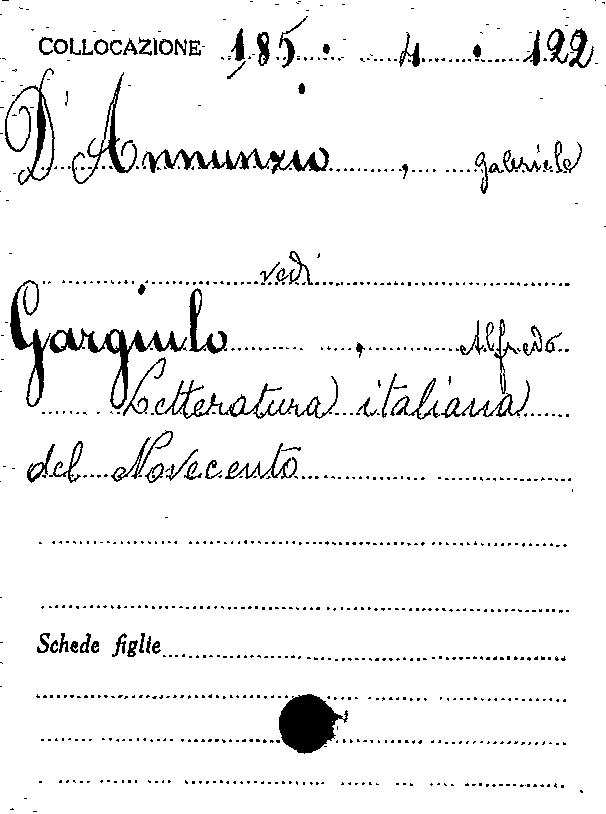 COLLOCAZIONE 185 · 4 · 122
D'Annunzio , Gabriele
vedi
Gargiulo , Alfredo
Letteratura italiana
del Novecento
Schede figlie